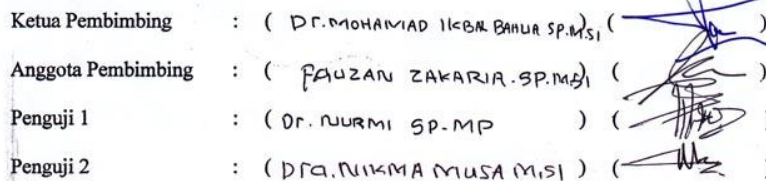 Ketua Pembimbing : ( Dr. MOHAMAD IKBAL BAHUA SP.M.Si ) ( )
Anggota Pembimbing : ( FAUZAN ZAKARIA. SP.MSi ) ( )
Penguji 1 : ( Dr. NURMI SP-MP ) ( )
Penguji 2 : ( Dra. NIKMA MUSA M.SI ) ( )